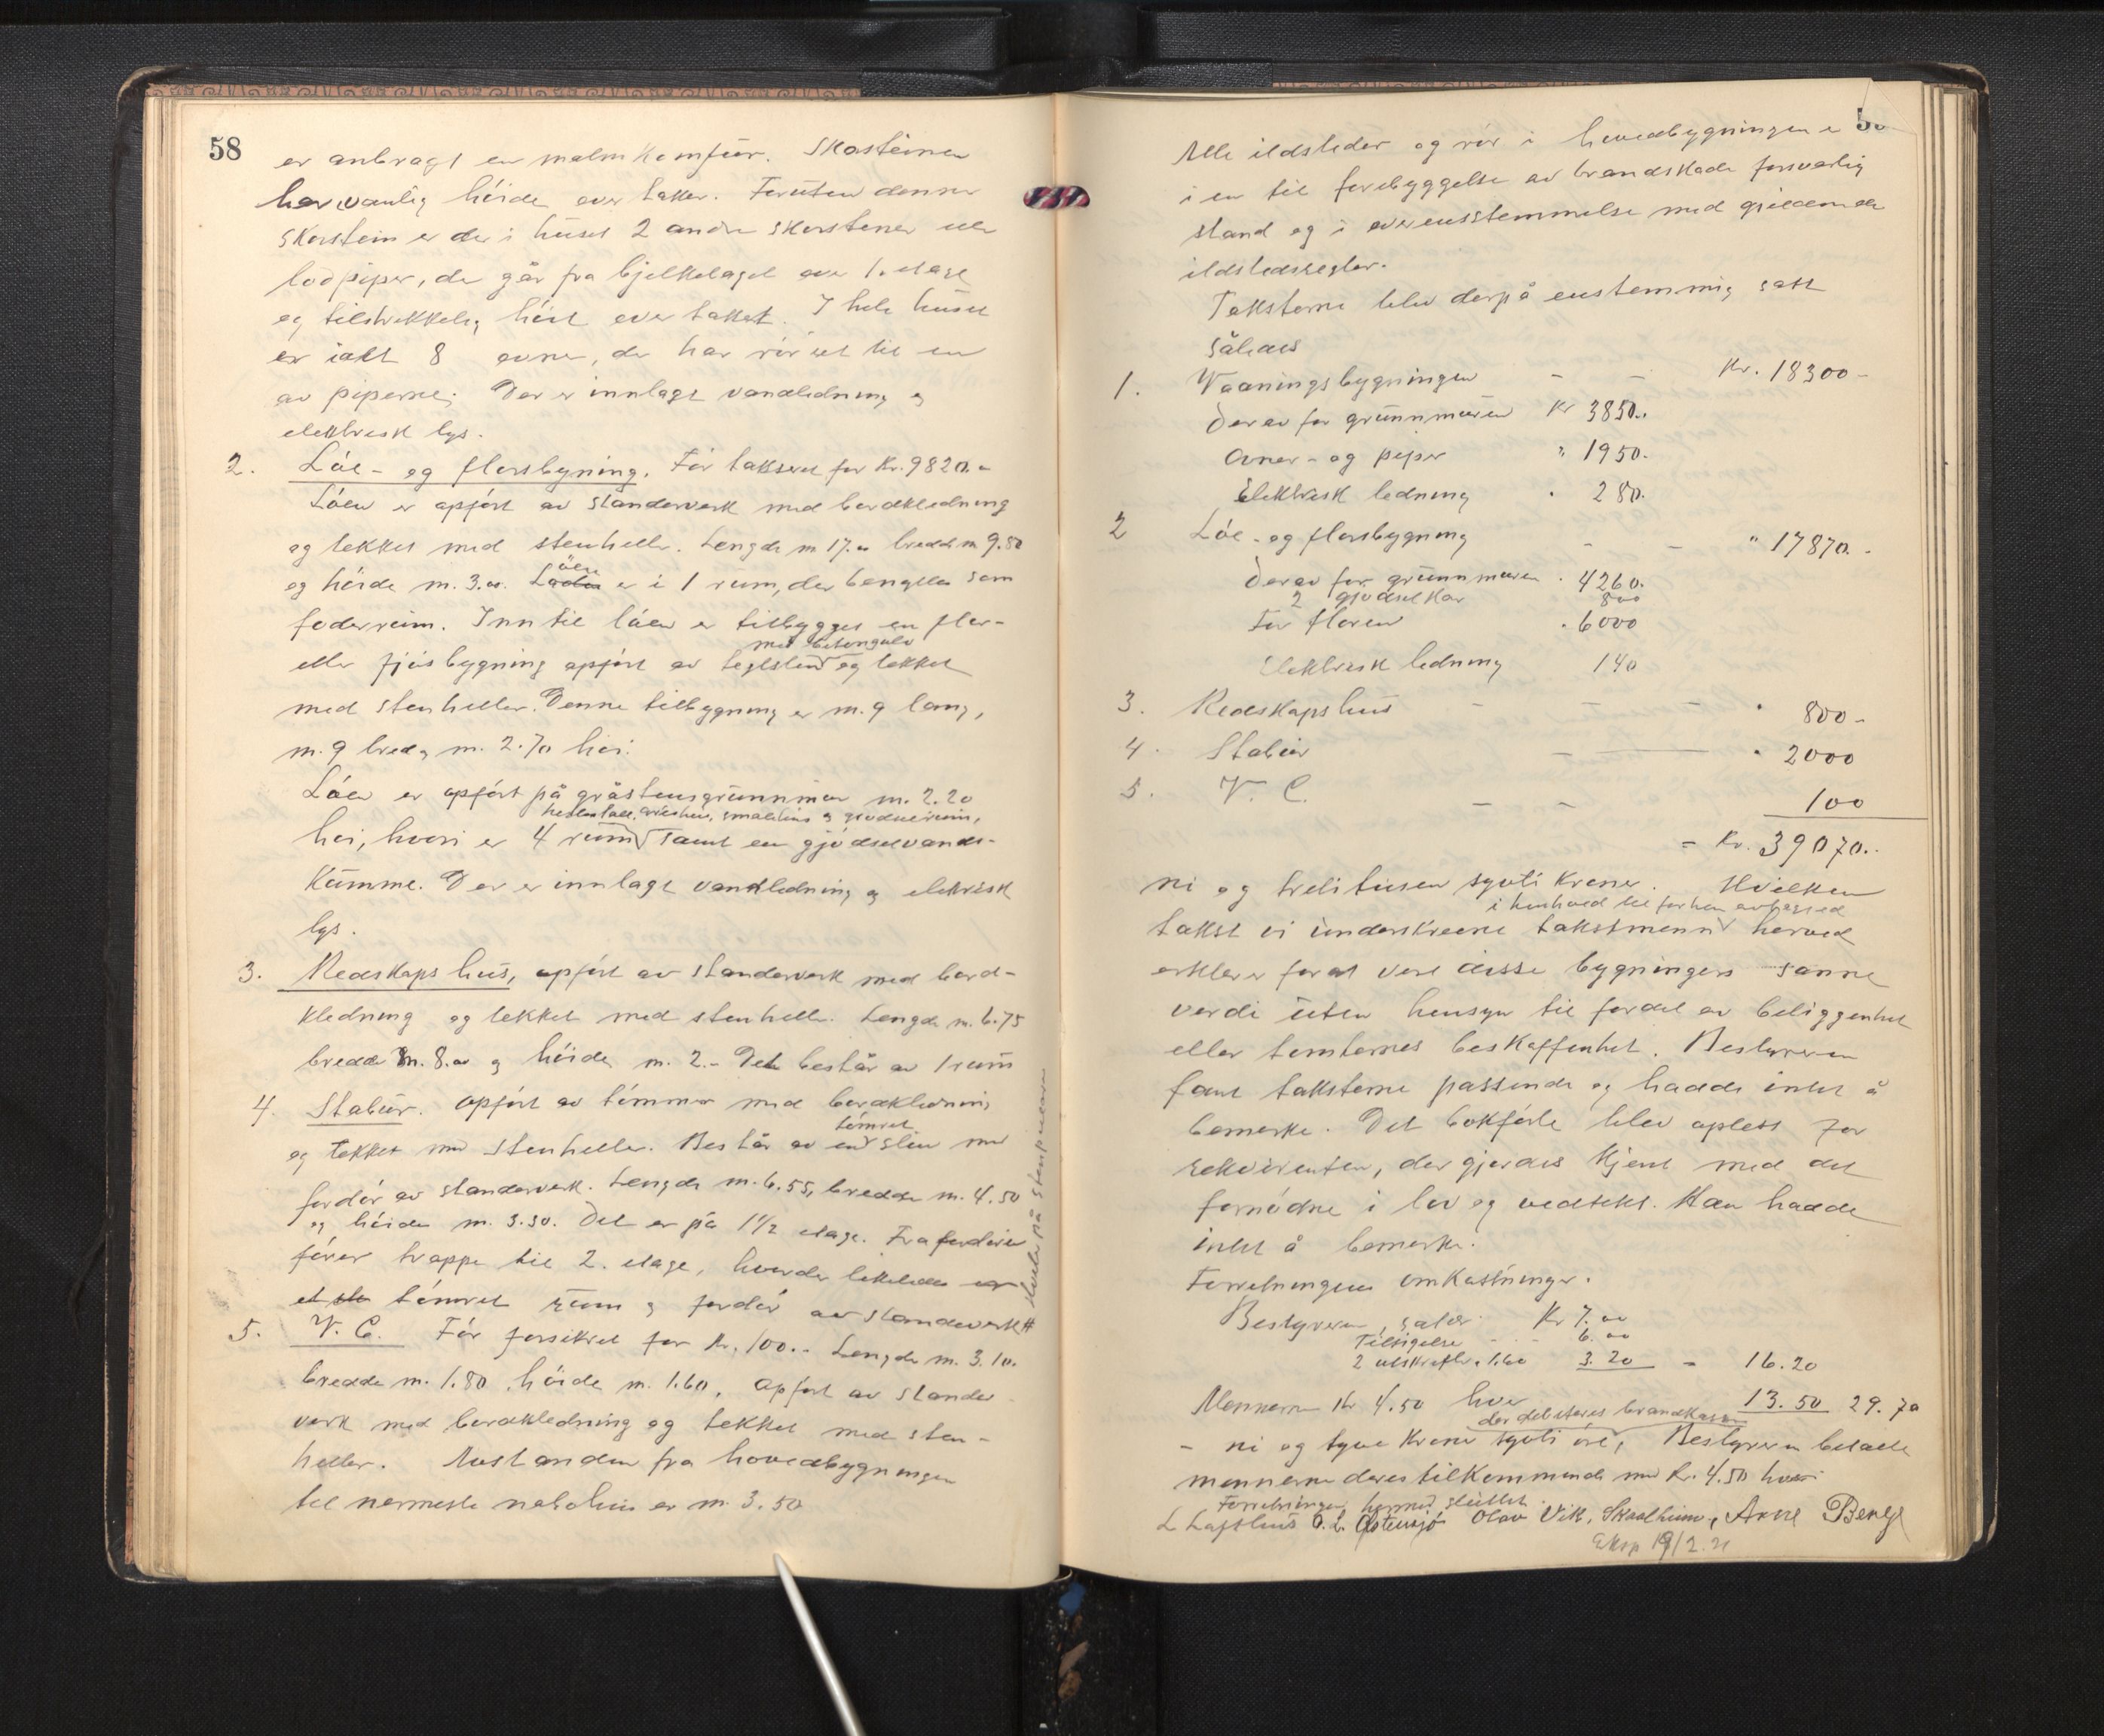 58
er anbragt en malmkomfur. Skorsteinen
har vanlig höide over taket. Foruten denne
skorstein er der i huset 2 andre skorstener eller
lodpiper, der går fra bjelkelaget over 1. etage
og tilstrekkelig höit over taket. I hele huset
er ialt 8 ovner, der har rör ut til en
av piperne. Der er innlagt vandledning og
elektrisk lys.
2. Löe- og florsbygning. För taksert for Kr. 9820.-
Löen er opfört av standerverk med bordkledning
og tekket med stenheller. Lengde m 17.00 bredde m 9.80
og höide m. 3.00. Löen er i 1 rum, der benyttes som
foderrum. Inntil löen er tilbygget en flor-
med betongulv
eller fjösbygning opfört av teglsten og tekket
med stenheller. Denne tilbygning er m. 9 lang,
m. 9 bred og m. 2.70 höi.
Löen er opfört på gråstensgrunnmur m. 2.20
hestestall, grisehus, småhus og gjödselrum,
höi, hvori er 4 rum samt en gjödselvands-
kumme. Der er innlagt vandledning og elektrisk
lys.
3. Redskapshus, opfört av standerverk med bord-
kledning og tekket med stenheller. Lengde m. 6.75
bredde m. 8.00 og höide m. 2.- Det består av 1 rum
4. Stabur. Opfört av tömmer med bordkledning
tömret
og tekket med stenheller. Består av en stue med
fordör av standerverk. Lengde m. 6.55, bredde m. 4.50
og höide m. 3.30. Det er på 1 1/2 etage. Fra fordören
förer trappe til 2. etage, hvorder likeledes er
et tömret rum og fordör av standerverk #
# hviler på stenpilarer
5. V. C. För forsikret for Kr. 100.- Lengde m. 3.10.
bredde m. 1.80, höide m. 1.60. Opfört av stander
verk med bordkledning og tekket med sten-
heller. Avstanden fra hovedbygningen
til nermeste nabohus er m. 3.50
Alle ildsteder og rör i hovedbygningen er
i en til forebyggelse av brandskade forsvarlig
stand og i overensstemmelse med gjeldende
ildstedsregler.
Taksterne blev derpå enstemmig satt
således
1. Vaaningsbygningen - - Kr. 18300-
Derav for grunnmuren Kr 3850..
Ovner- og piper " 1950.
Elektrisk ledning . 280.
2 Löe- og florsbygning - - " 17870.-
Derav for grunnmuren . 4260.
2 gjödselkar 800
For floren . 6000
Elektrisk ledning 140
3. Redskapshus - - - " 800-
4. Stabur - - " 2000
5. V. C. - - 100
= Kr. 39070..
ni og tretitusen sytti kroner. Hvilken
i henhold til forhen avhessed
takst vi underskrevne takstmenn herved
erklerer for at vere disse bygningers sanne
verdi uten hensyn til fordel av beliggenhet
eller tomternes beskaffenhet. Bestyreren
fant taksterne passende og hadde intet å
bemerke. Det bokförte blev oplest for
rekvirenten, der gjordes kjent med det
fornödne i lov og vedtekt. Han hadde
intet å bemerke.
Forretningens omkostninger.
Bestyreren, salær Kr 7.00
Tilsigelse - - 6.00
2 utskrifter a 1.60 3.20 - 16.20
Mennerne Kr 4.50 hver 13.50 29.70
der debiteres brandkassen
- ni og tyve kroner sytti öre, Bestyreren betalte
mennerne deres tilkommende med Kr. 4.50 hver.
Forretningen hermed sluttet.
L Lofthus O. L. Östensjö Olav Vik, Skaalheim, Arne Berge
Eksp 19/2.21